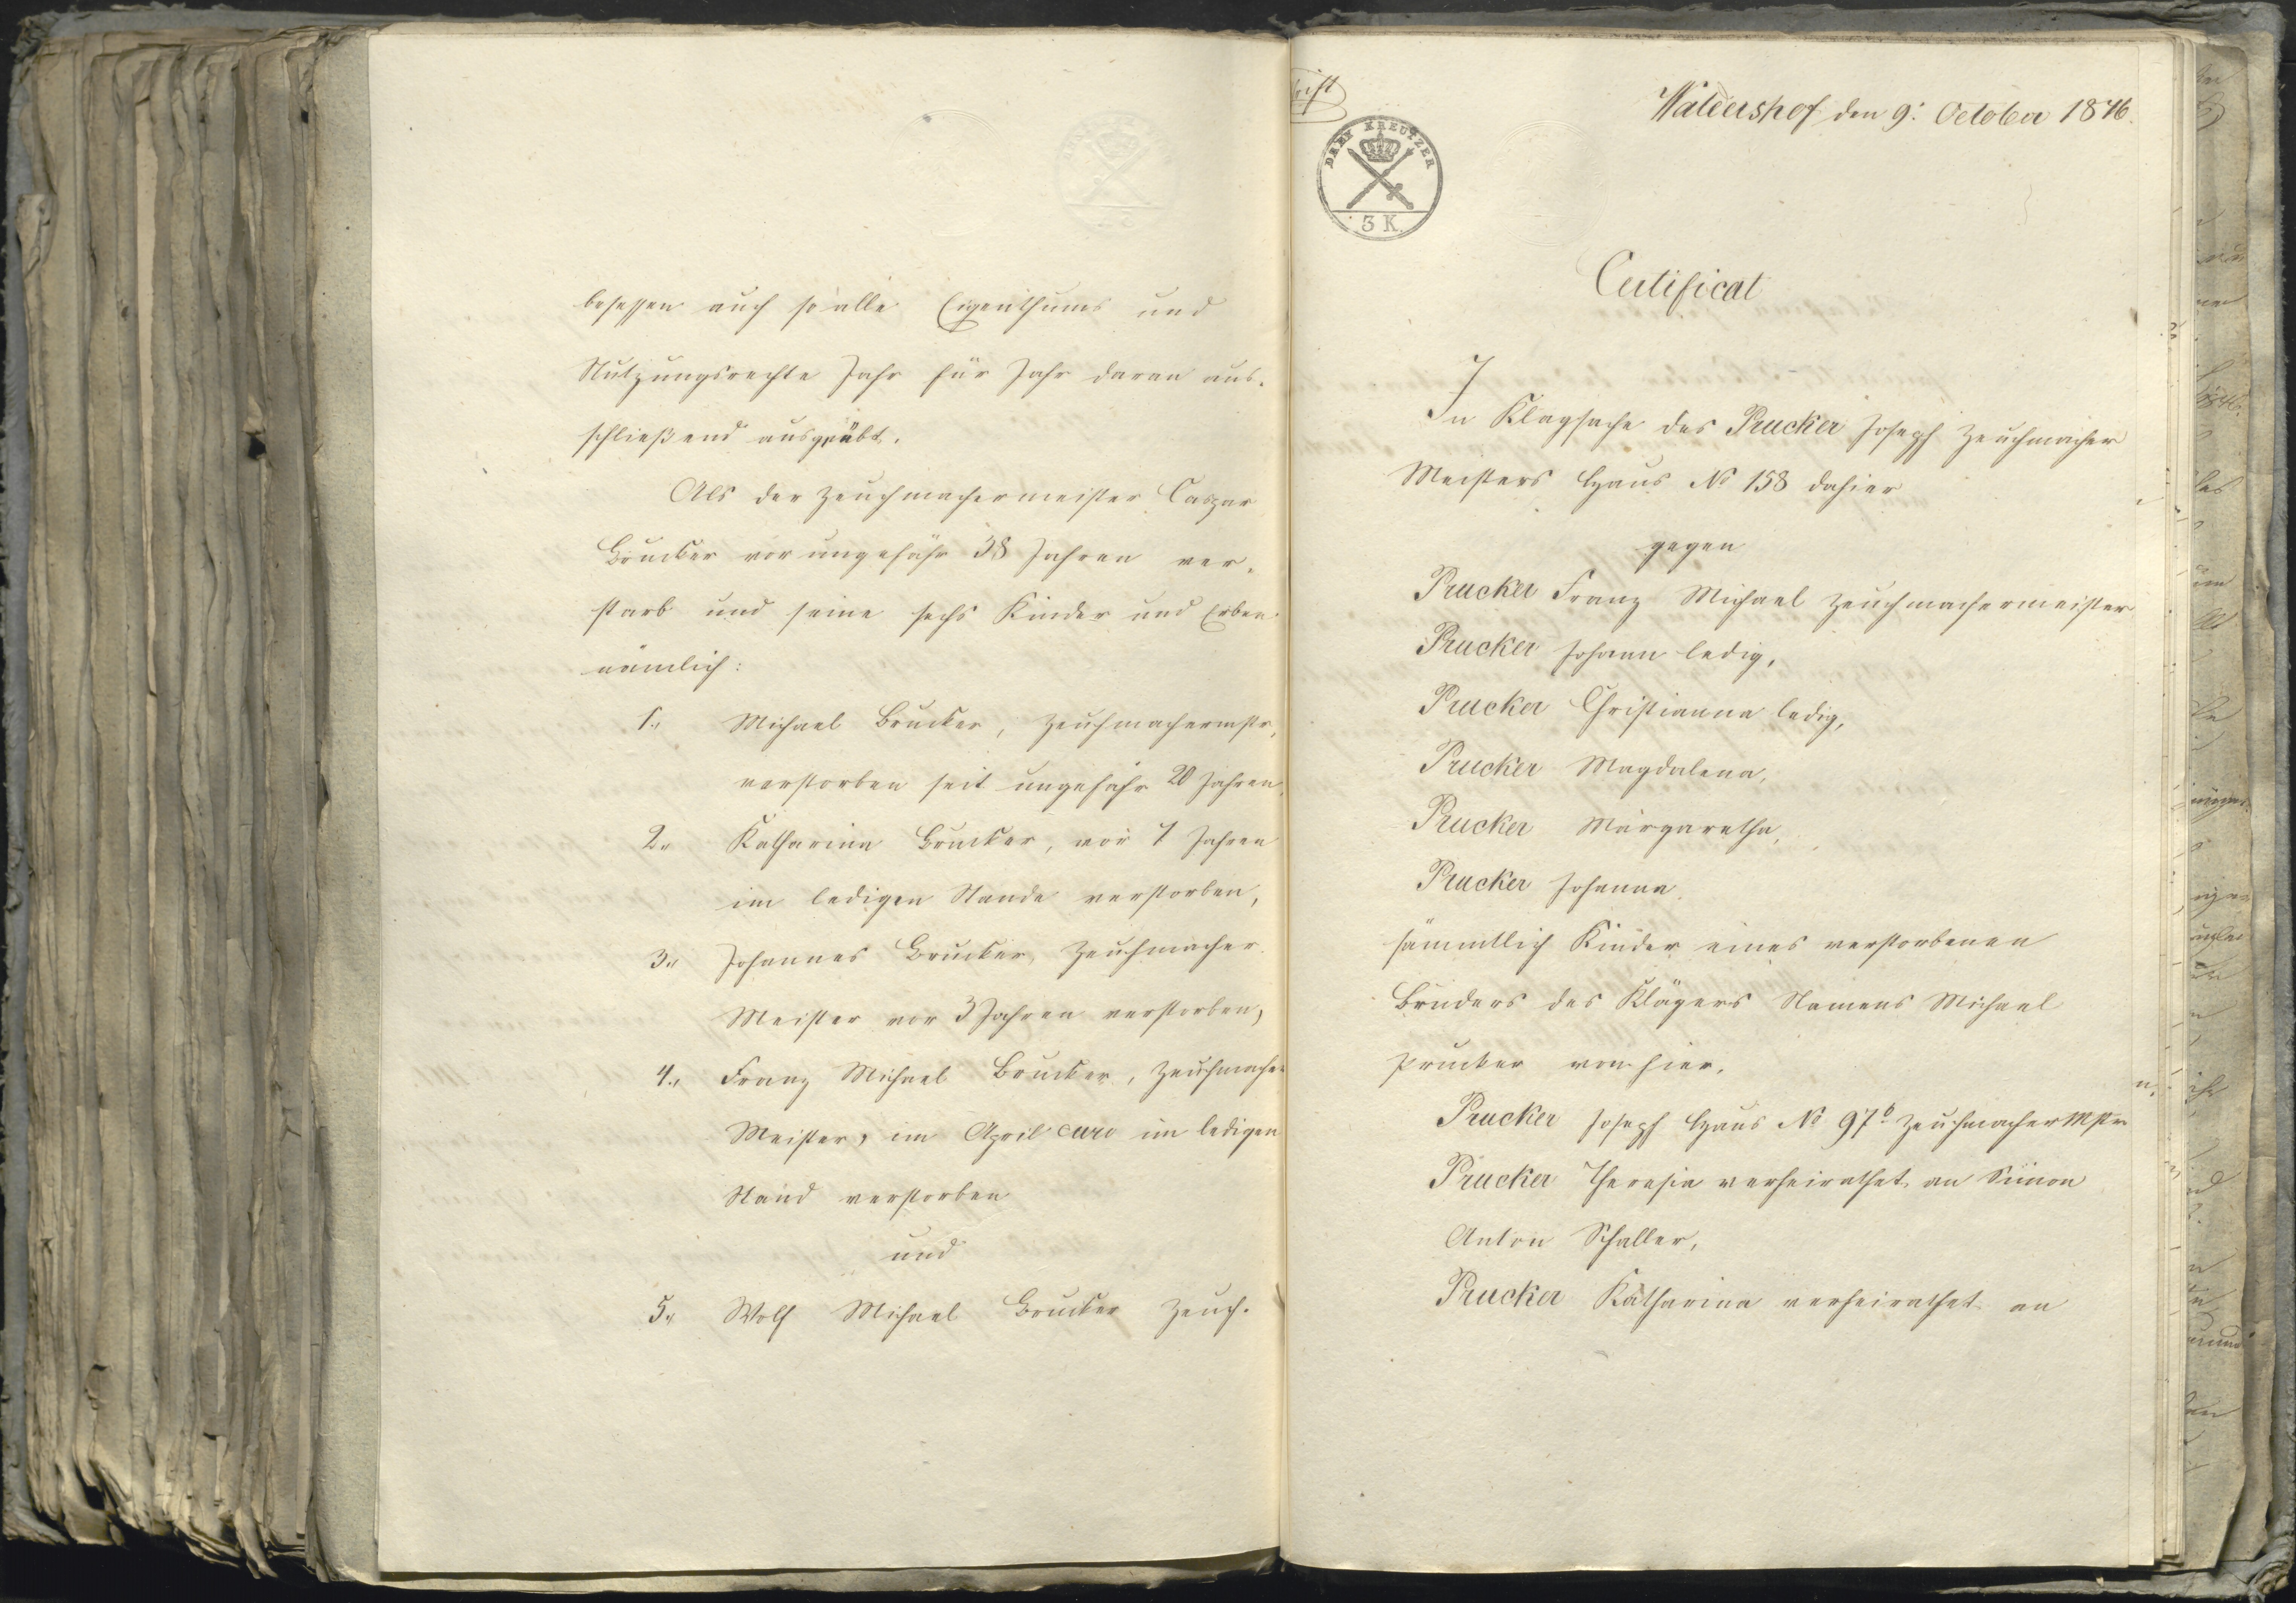 besessen auch so alle Eigenthums und
Nutzungsrechte Jahr für Jahr daran aus-
schließend ausgeübt.
Als der Zeuchmachermeister Caspar
Brucker vor ungefähr 38 Jahren ver-
starb und seine sechs Kinder und Erben
nämlich:
1., Michael Brucker, Zeuchmachermstr,
verstorben seit ungefähr 20 Jahren,
2., Katharina Brucker, vor 7 Jahren
im ledigen Stande verstorben,
3., Johannes Brucker, Zeuchmacher
Meister vor 3 Jahren verstorben,
4., Franz Michael Brucker, Zeuchmacher
Meister, im April curr im ledigen
Stand verstorben
und
5., Wolf Michael Brucker Zeuch-
rift
DREY KREUTZER
3 K.
Waldershof den 9: October 1846.
Certificat
In Klagsache des Prucker Joseph Zeuchmacher
Meisters Haus No 158 dahier
gegen
Prucker Franz Michael Zeuchmachermeister
Prucker Johann ledig,
Prucker Christianna ledig,
Prucker Magdalena,
Prucker Margaretha,
Prucker Johanna,
sämmtlich Kinder eines verstorbenen
Bruders des Klägers Namens Michael
Prucker von hier,
Prucker Joseph Haus No 97b Zeuchmacher Mstr
Prucker Theresia verheirathet an Simon
Anton Schaller,
Prucker Katharina verheirathet an